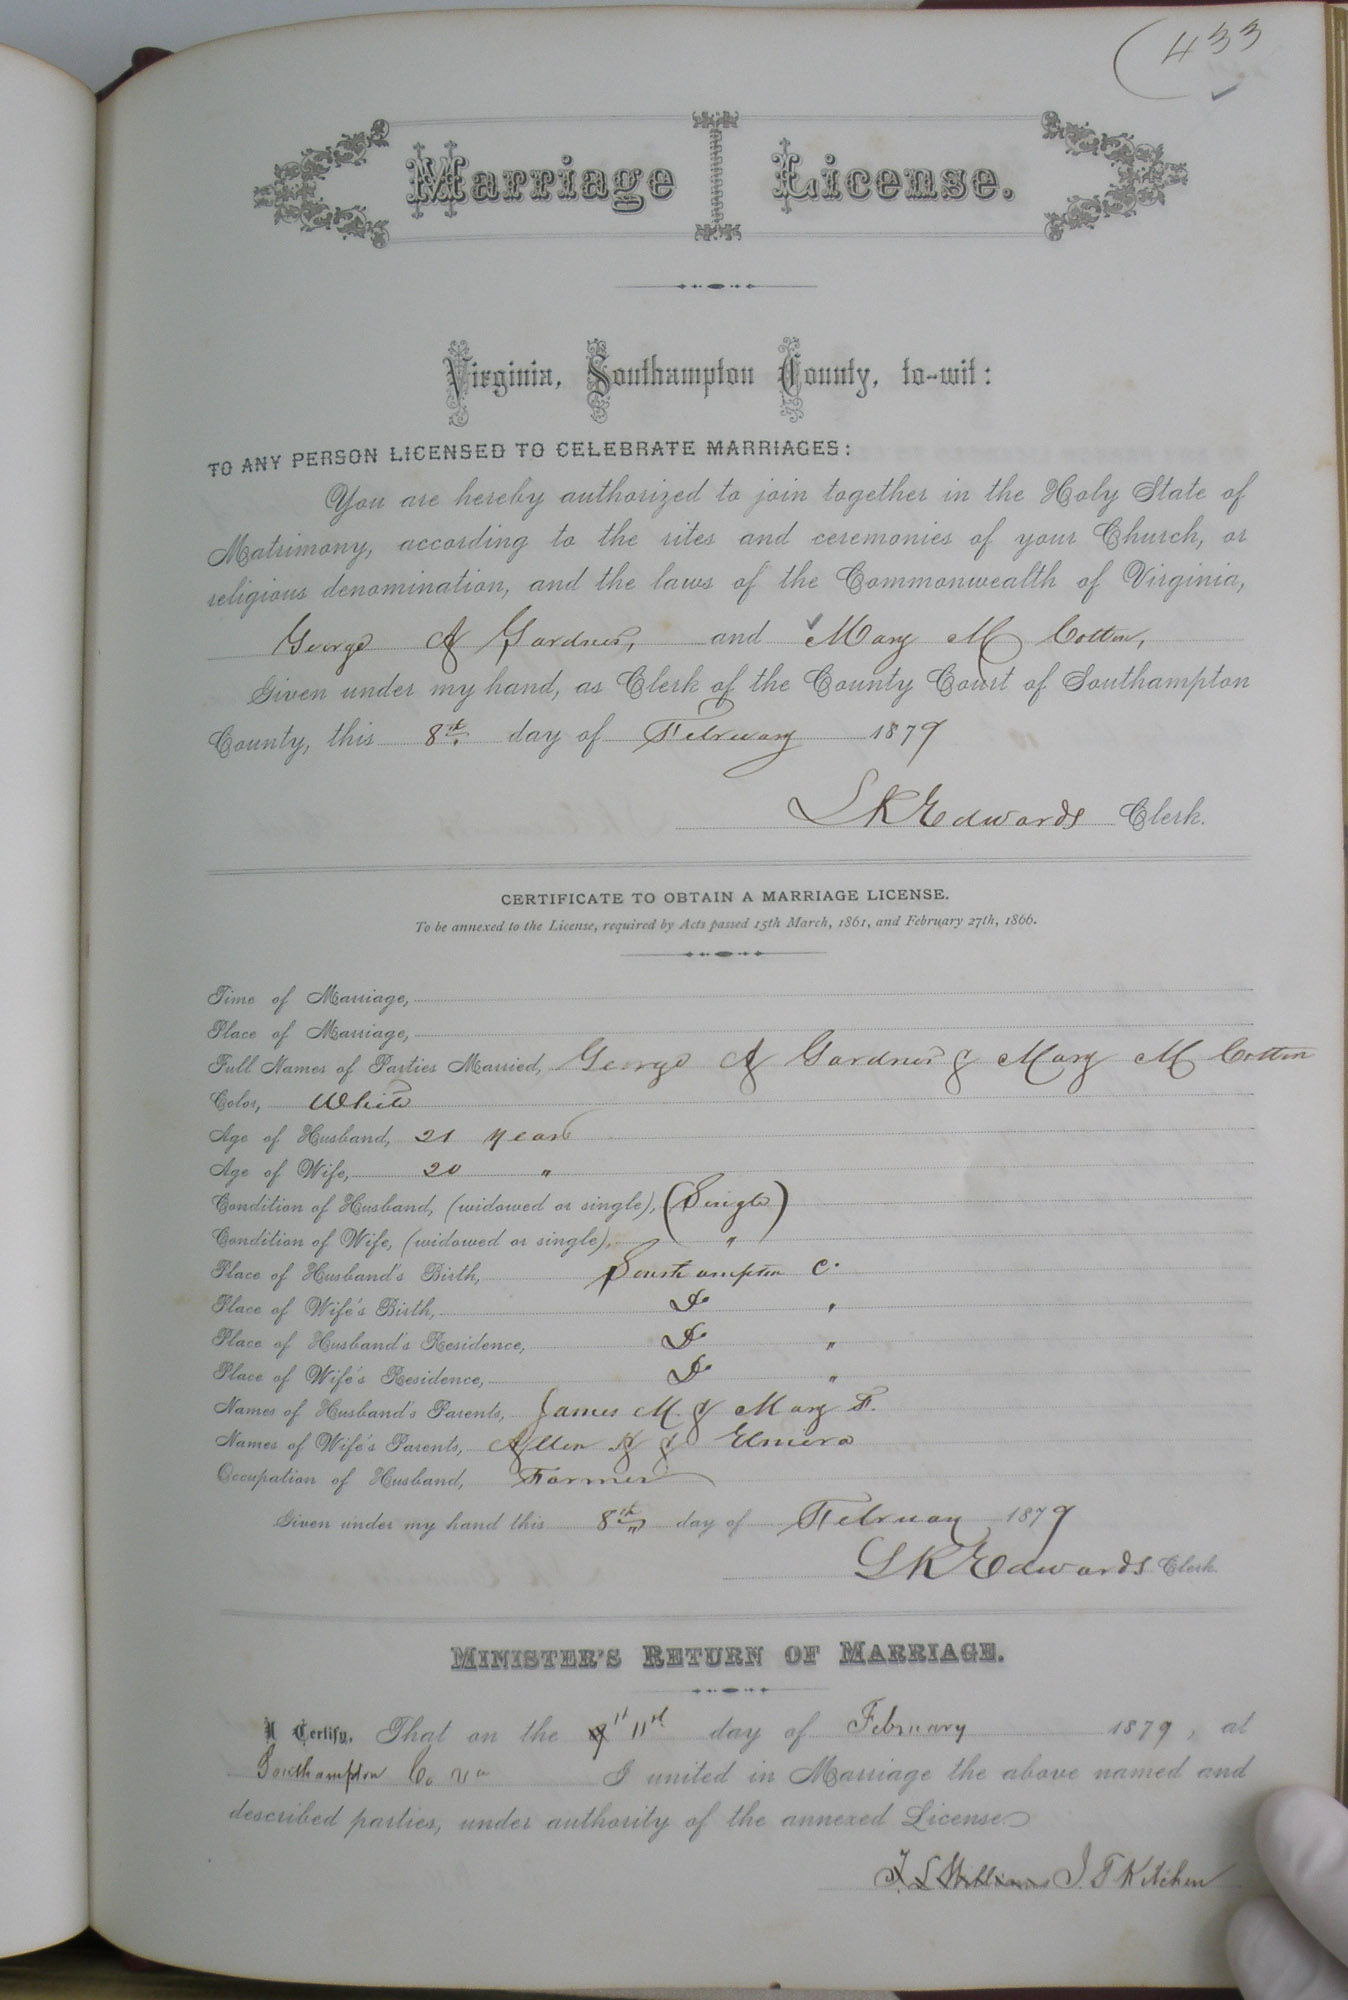 433
Marriage License.
Virginia, Southampton County, to-wit:
TO ANY PERSON LICENSED TO CELEBRATE MARRIAGES:
You are hereby authorized to join together in the Holy State of
Matrimony, according to the rites and ceremonies of your Church, or
religious denomination, and the laws of the Commonwealth of Virginia,
George A Gardner, and Mary M Cotton,
Given under my hand, as Clerk of the County Court of Southampton
County, this 8th day of February 1879
L K Edwards Clerk.
CERTIFICATE TO OBTAIN A MARRIAGE LICENSE.
To be annexed to the License, required by Acts passed 15th March, 1861, and February 27th, 1866.
Time of Marriage,
Place of Marriage,
Full Names of Parties Married, George A Gardner & Mary M Cotton
Color, White
Age of Husband, 21 years
Age of Wife, 20 "
Condition of Husband, (widowed or single), (Single)
Condition of Wife, (widowed or single), "
Place of Husband's Birth, Southampton C.
Place of Wife's Birth, Do "
Place of Husband's Residence, Do "
Place of Wife's Residence, Do "
Names of Husband's Parents, James M. & Mary F.
Names of Wife's Parents, Allen & Elmira
Occupation of Husband, Farmer
Given under my hand this 8th day of February 1879
L K Edwards Clerk.
MINISTER'S RETURN OF MARRIAGE.
I Certify, That on the 11th day of February 1879, at
Southampton Co Va I united in Marriage the above named and
described parties, under authority of the annexed License
J. T. Kitchen